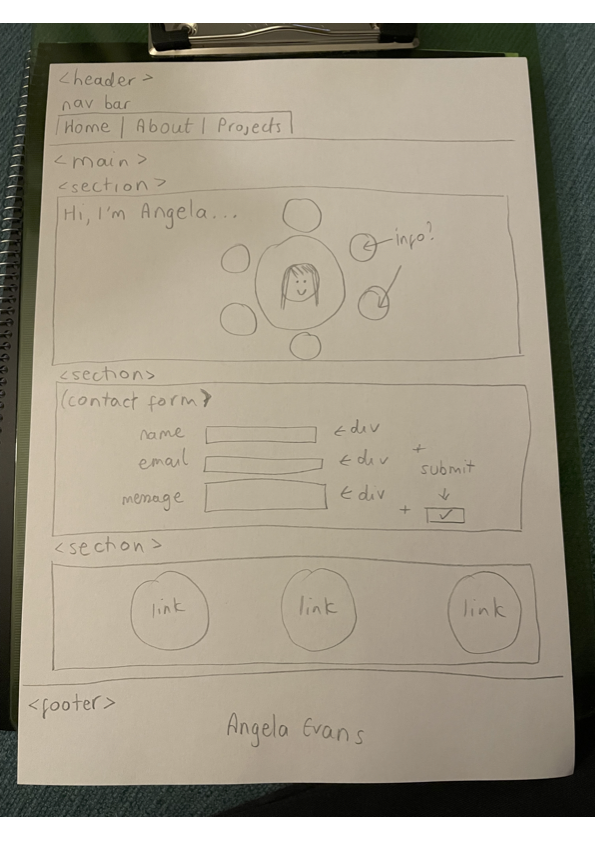 <header>
nav bar
Home | About | Projects
<main>
<section>
Hi, I'm Angela...
info?
<section>
(contact form)
name ← div
email ← div
+ submit
message ← div
+
<section>
link link link
<footer>
Angela Evans